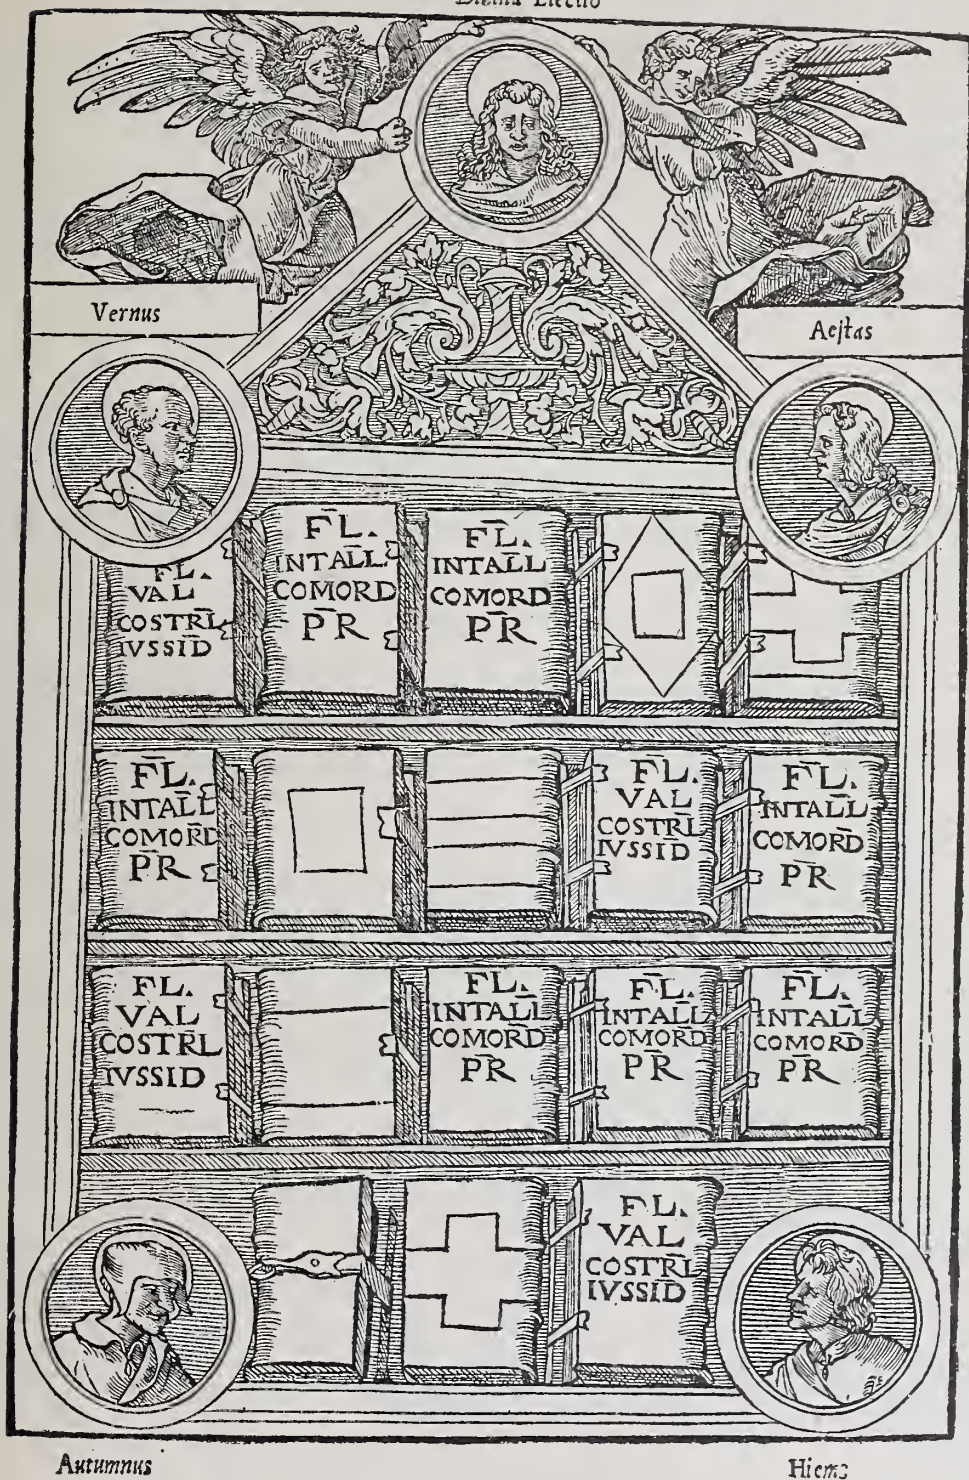 Electio
Vernus
Aeſtas
FL.
VAL
COSTRL̄
IVSSID̄
F̄L.
INTAL̄L
COMORD
P̄R
F̄L.
INTAL̄L
COMORD
P̄R
F̄L.
INTAL̄L
COMOR̄D
P̄R
F̄L.
VAL
COSTRL̄
IVSSID̄
F̄L.
INTAL̄L
COMOR̄D
P̄R
FL.
VAL
COSTR̄L
IVSSID
FL.
INTAL̄L
COMOR̄D
P̄R
F̄L.
INTAL̄L
COMOR̄D
P̄R
F̄L.
INTAL̄L
COMOR̄D
P̄R
FL.
VAL
COSTRL̄
IVSSID̄
Autumnus
Hiems